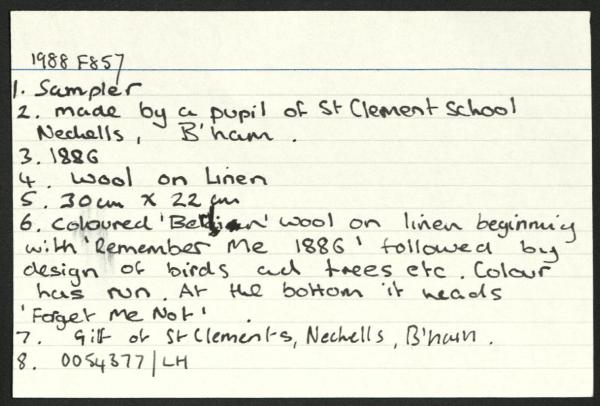 1988 F857
1. Sampler
2. made by a pupil of St Clement School
Nechells, B'ham.
3. 1886
4. Wool on Linen
5. 30cm x 22cm
6. Coloured 'Berlian' wool on linen beginning
with 'Remember Me 1886' followed by
design of birds and trees etc. Colour
has run. At the bottom it reads
'Forget Me Not'.
7. Gift of St Clements, Nechells, B'ham.
8. 0054377/LH